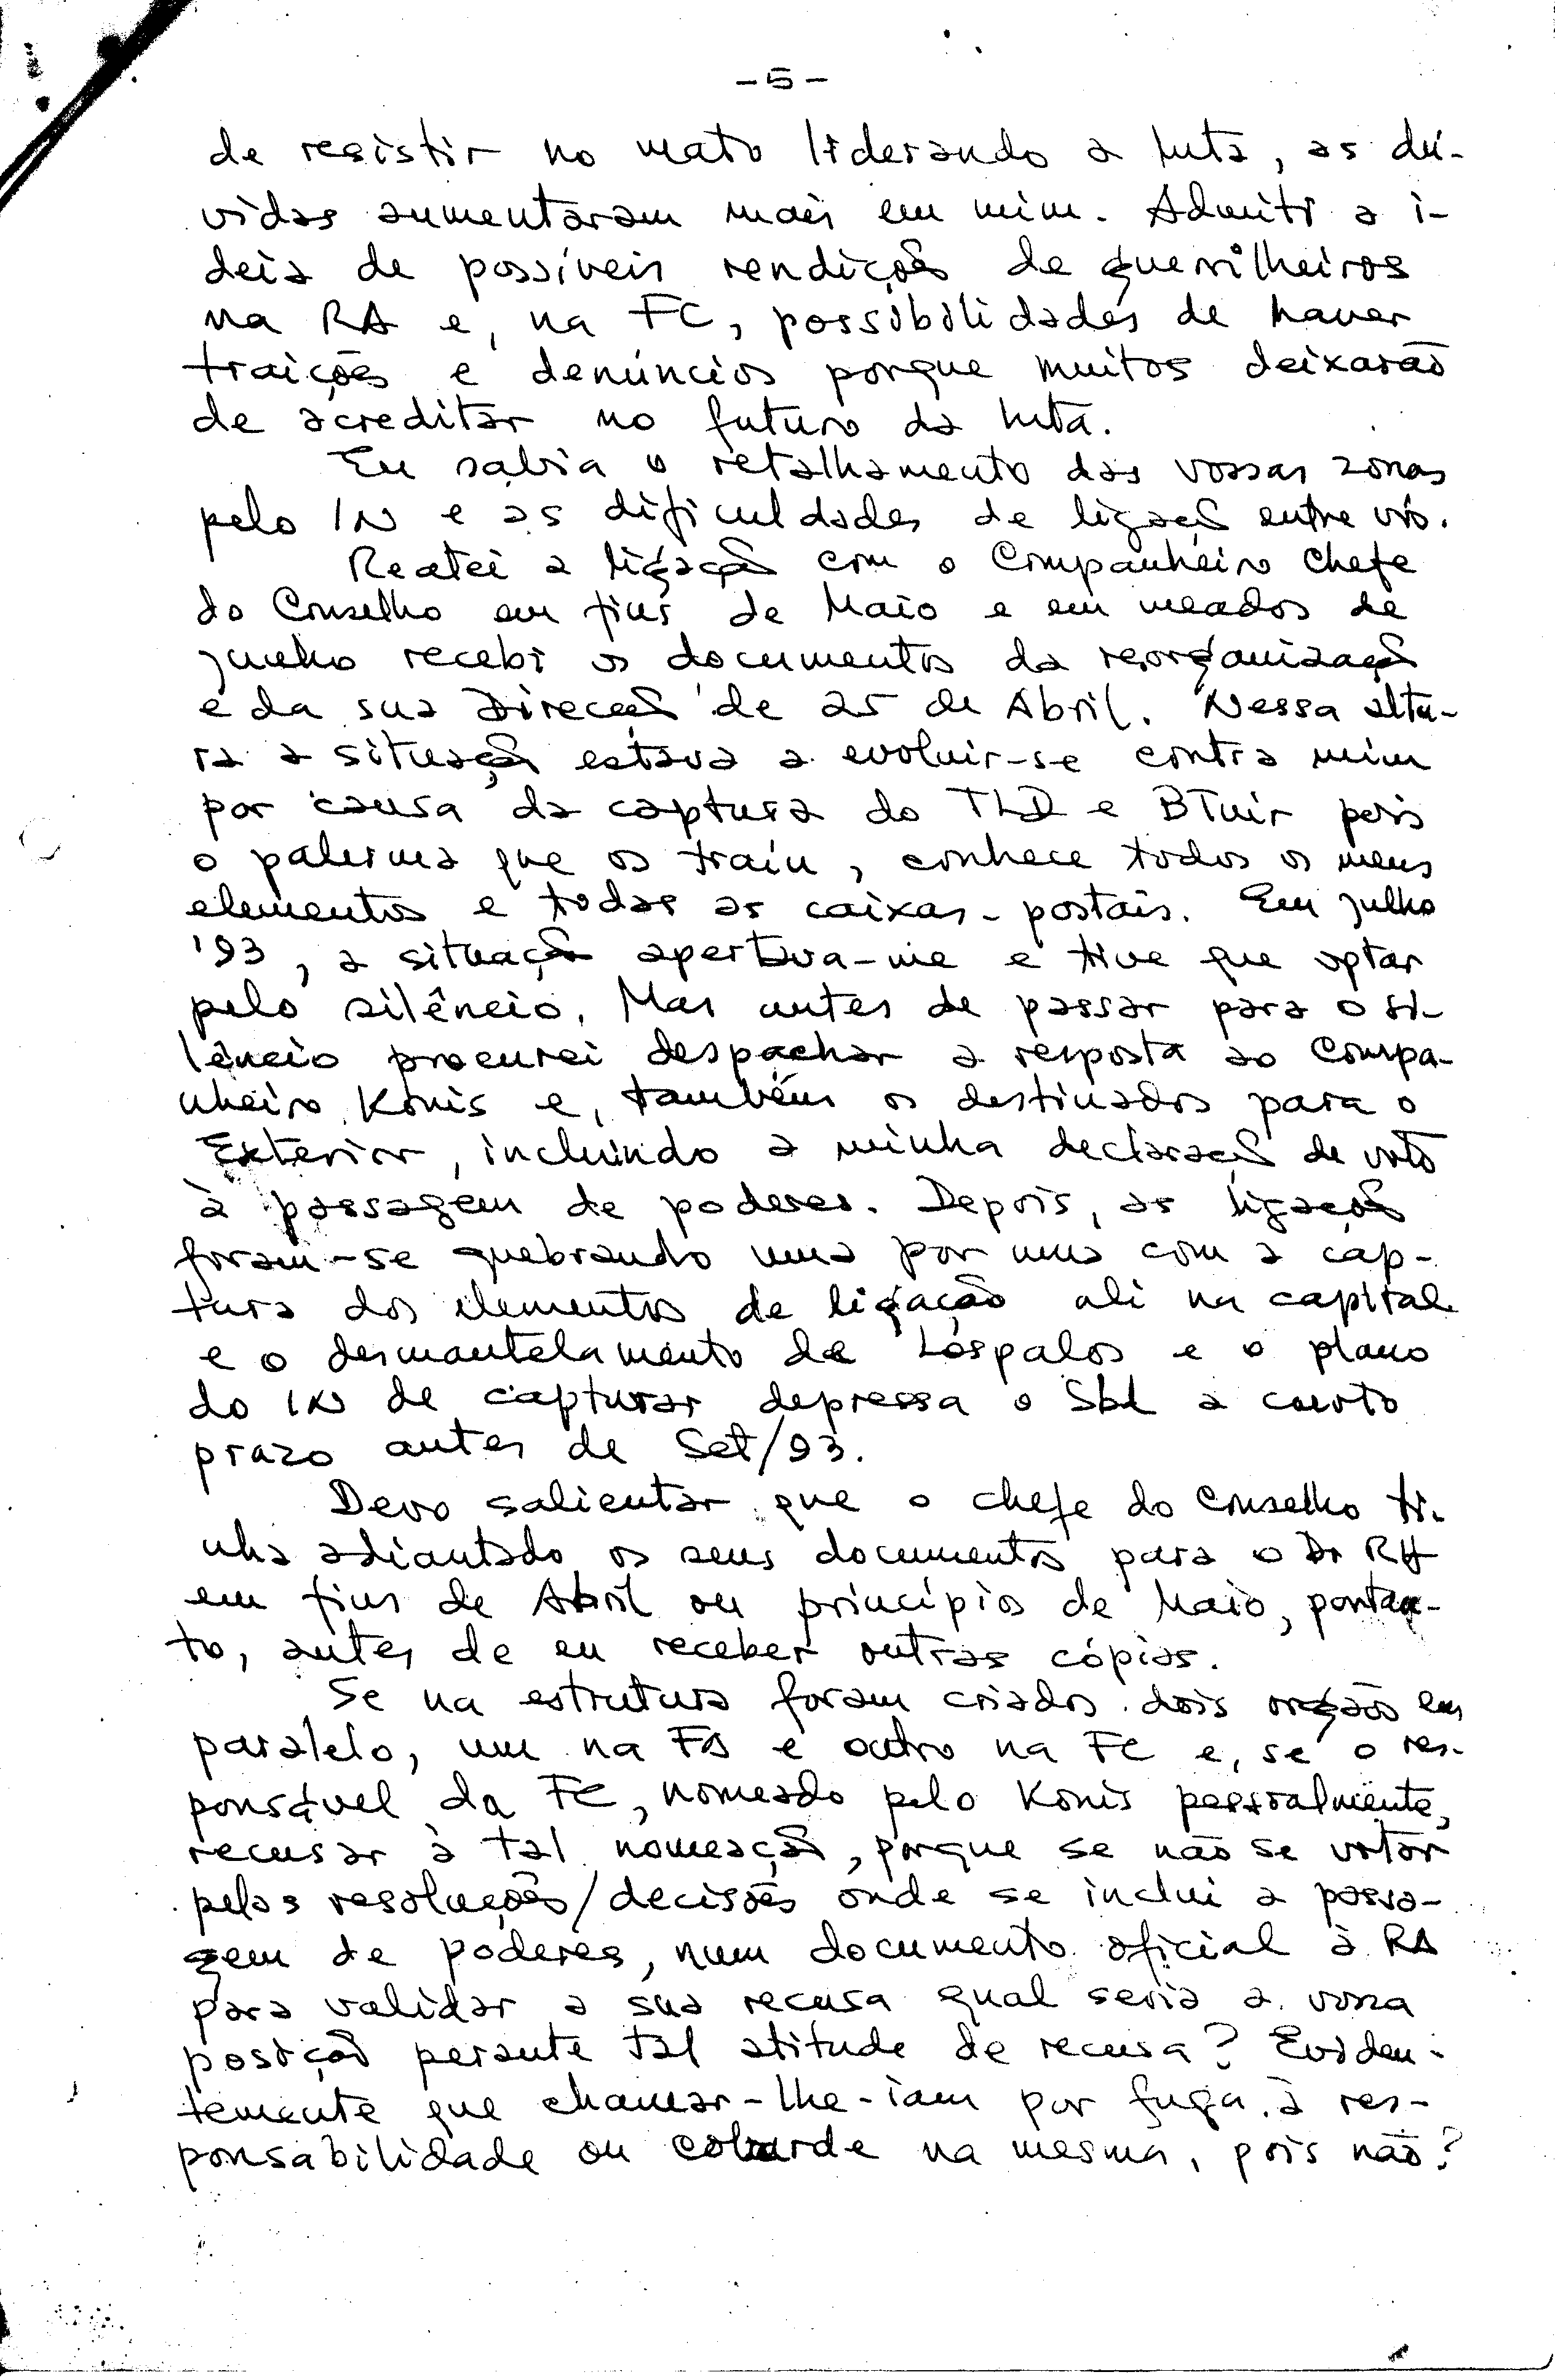 -5-
de resistir no mato liderando a luta, as dú-
vidas aumentaram mais em mim. Admiti a i-
deia de possíveis rendições de guerrilheiros
na RA e, na FC, possibilidades de haver
traições e denúncios porque muitos deixarão
de acreditar no futuro da luta.
Eu sabia o retalhamento das vossas zonas
pelo IN e as dificuldades de ligação entre vós.
Reatei a ligação com o Companheiro Chefe
do Conselho em fins de Maio e em meados de
junho recebi os documentos da reorganização
e da sua Direcção de 25 de Abril. Nessa altu-
ra a situação estava a evoluir-se contra mim
por causa da captura do TLD e BTuir pois
o palerma que os traiu, conhece todos os meus
elementos e todas as caixas-postais. Em julho
'93, a situação apertava-me e tive que optar
pelo silêncio. Mas antes de passar para o si-
lêncio procurei despachar a resposta ao Compa-
nheiro Konis e, também os destinados para o
Exterior, incluindo a minha declaração de voto
à passagem de poderes. Depois, as ligações
foram-se quebrando uma por uma com a cap-
tura dos elementos de ligação ali na capital
e o desmantelamento de Lospalos e o plano
do IN de capturar depressa o Sbl a curto
prazo antes de Set/93.
Devo salientar que o chefe do Conselho ti-
nha adiantado os seus documentos para o Dr RH
em fins de Abril ou princípios de Maio, portan-
to, antes de eu receber outras cópias.
Se na estrutura foram criados dois orgãos em
paralelo, um na FA e outro na FC e, se o res-
ponsável da FC, nomeado pelo Konis pessoalmente,
recusar à tal nomeação, porque se não se votar
pelas resoluções/decisões onde se inclui a passa-
gem de poderes, num documento oficial à RA
para validar a sua recusa qual seria a vossa
posição perante tal atitude de recusa? Eviden-
temente que chamar-lhe-iam por fuga à res-
ponsabilidade ou cobarde na mesma, pois não?